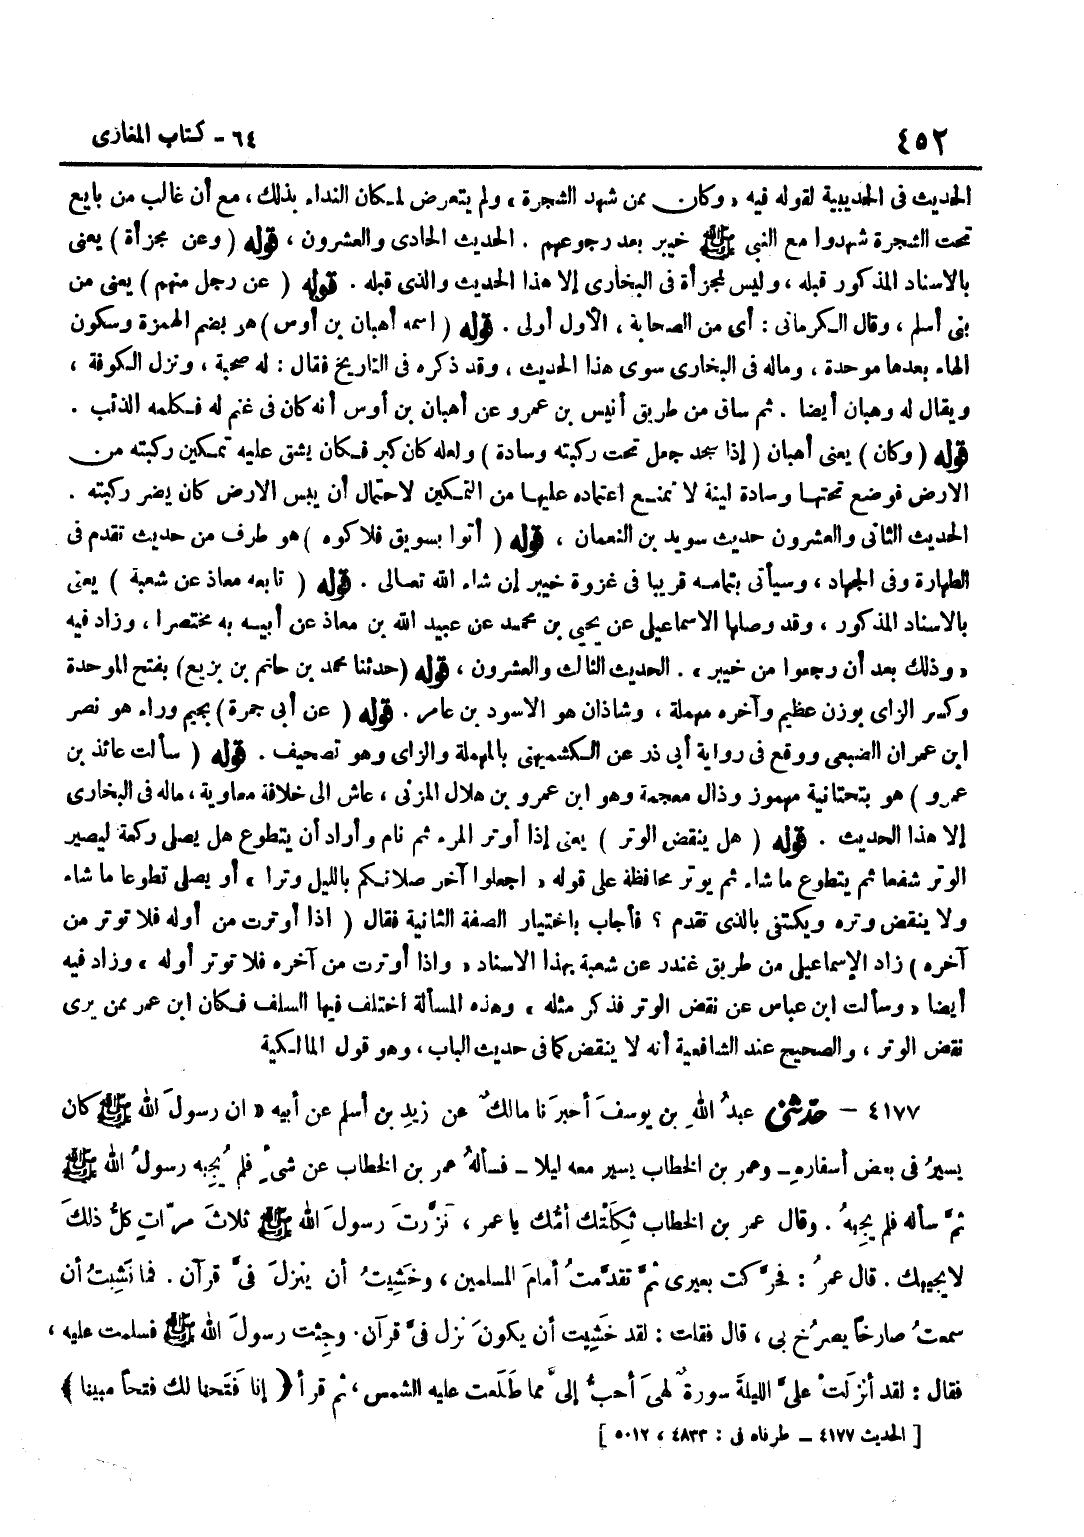 ٤٥٢
٦٤ - كتاب المغازى
الحديث فى الحديبية لقوله فيه « وكان ممن شهد الشجرة » ولم يتعرض لمكان النداء بذلك ، مع أن غالب من بايع
تحت الشجرة شهدوا مع النبى ﷺ خيبر بعد رجوعهم . الحديث الحادى والعشرون ، قوله ( وعن مجزأة ) يعنى
بالاسناد المذكور قبله ، وليس لمجزأة فى البخارى إلا هذا الحديث والذى قبله . قوله ( عن رجل منهم ) يعنى من
بنى أسلم ، وقال الكرمانى : أى من الصحابة ، الأول أولى . قوله ( اسمه أهبان بن أوس ) هو بضم الهمزة وسكون
الهاء بعدها موحدة ، وماله فى البخارى سوى هذا الحديث ، وقد ذكره فى التاريخ فقال : له صحبة ، ونزل الكوفة ،
ويقال له وهبان أيضا . ثم ساق من طريق أنيس بن عمرو عن أهبان بن أوس أنه كان فى غنم له فكلمه الذئب .
قوله ( وكان ) يعنى أهبان ( إذا سجد جعل تحت ركبته وسادة ) ولعله كان كبر فكان يشق عليه تمكين ركبته من
الارض فوضع تحتها وسادة لينة لا تمنع اعتماده عليها من التمكين لاحتمال أن يبس الارض كان يضر ركبته .
الحديث الثانى والعشرون حديث سويد بن النعمان ، قوله ( أتوا بسويق فلاكوه ) هو طرف من حديث تقدم فى
الطهارة وفى الجهاد ، وسيأتى بتمامه قريبا فى غزوة خيبر إن شاء الله تعالى . قوله ( تابعه معاذ عن شعبة ) يعنى
بالاسناد المذكور ، وقد وصلها الاسماعيلى عن يحيى بن محمد عن عبيد الله بن معاذ عن أبيه به مختصرا ، وزاد فيه
« وذلك بعد أن رجعوا من خيبر » . الحديث الثالث والعشرون ، قوله (حدثنا محمد بن حاتم بن بزيع) بفتح الموحدة
وكسر الزاى بوزن عظيم وآخره مهملة ، وشاذان هو الاسود بن عامر . قوله ( عن أبى جمرة ) بجيم وراء هو نصر
ابن عمران الضبعى ووقع فى رواية أبى ذر عن الكشميهنى بالمهملة والزاى وهو تصحيف . قوله ( سألت عائذ بن
عمرو ) هو بتحتانية مهموز وذال معجمة وهو ابن عمرو بن هلال المزنى ، عاش الى خلافة معاوية ، ماله فى البخارى
إلا هذا الحديث . قوله ( هل ينقض الوتر ) يعنى إذا أوتر المرء ثم نام وأراد أن يتطوع هل يصلى ركعة ليصير
الوتر شفعا ثم يتطوع ما شاء ثم يوتر محافظة على قوله « اجعلوا آخر صلاتكم بالليل وترا » أو يصلى تطوعا ما شاء
ولا ينقض وتره ويكتفى بالذى تقدم ؟ فأجاب باختيار الصفة الثانية فقال ( اذا أوترت من أوله فلا توتر من
آخره ) زاد الإسماعيلى من طريق غندر عن شعبة بهذا الاسناد « واذا أوترت من آخره فلا توتر أوله » وزاد فيه
أيضا « وسألت ابن عباس عن نقض الوتر فذكر مثله » وهذه المسألة اختلف فيها السلف فكان ابن عمر ممن يرى
نقض الوتر ، والصحيح عند الشافعية أنه لا ينقض كما فى حديث الباب ، وهو قول المالكية
٤١٧٧ - حدّثنى عبدُ اللهِ بن يوسفَ أخبرَنا مالكٌ عن زيدِ بن أسلم عن أبيه « ان رسولَ الله ﷺ كان
يسيرُ فى بعض أسفارهِ - وعمر بن الخطاب يسير معه ليلا - فسألهُ عمر بن الخطاب عن شىءٍ فلم يُجِبه رسولُ الله ﷺ
ثمَّ سأله فلم يجبهُ . وقال عمر بن الخطاب ثكِلَتْك أمُّك يا عمر ، نزَّرتَ رسولَ الله ﷺ ثلاثَ مرّاتٍ كلُّ ذلكَ
لا يجيبك . قال عمرُ : فحرَّكت بعيرى ثمَّ تقدَّمتُ أمامَ المسلمين ، وخَشِيتُ أن ينزلَ فىَّ قرآن . فما نَشِبتُ أن
سمعتُ صارخاً يصرُخ بى ، قال فقلت : لقد خَشِيت أن يكونَ نزل فىَّ قرآن . وجِئت رسولَ الله ﷺ فسلمت عليه ،
فقال : لقد أنزِلَتْ علىَّ الليلةَ سورةٌ لهىَ أحبُّ إلىَّ مما طلَعت عليه الشمس ، ثم قرأ ﴿ إنا فَتَحنا لك فتحاً مبينا ﴾
[ الحديث ٤١٧٧ - طرفاه فى : ٤٨٣٣ ، ٥٠١٢ ]